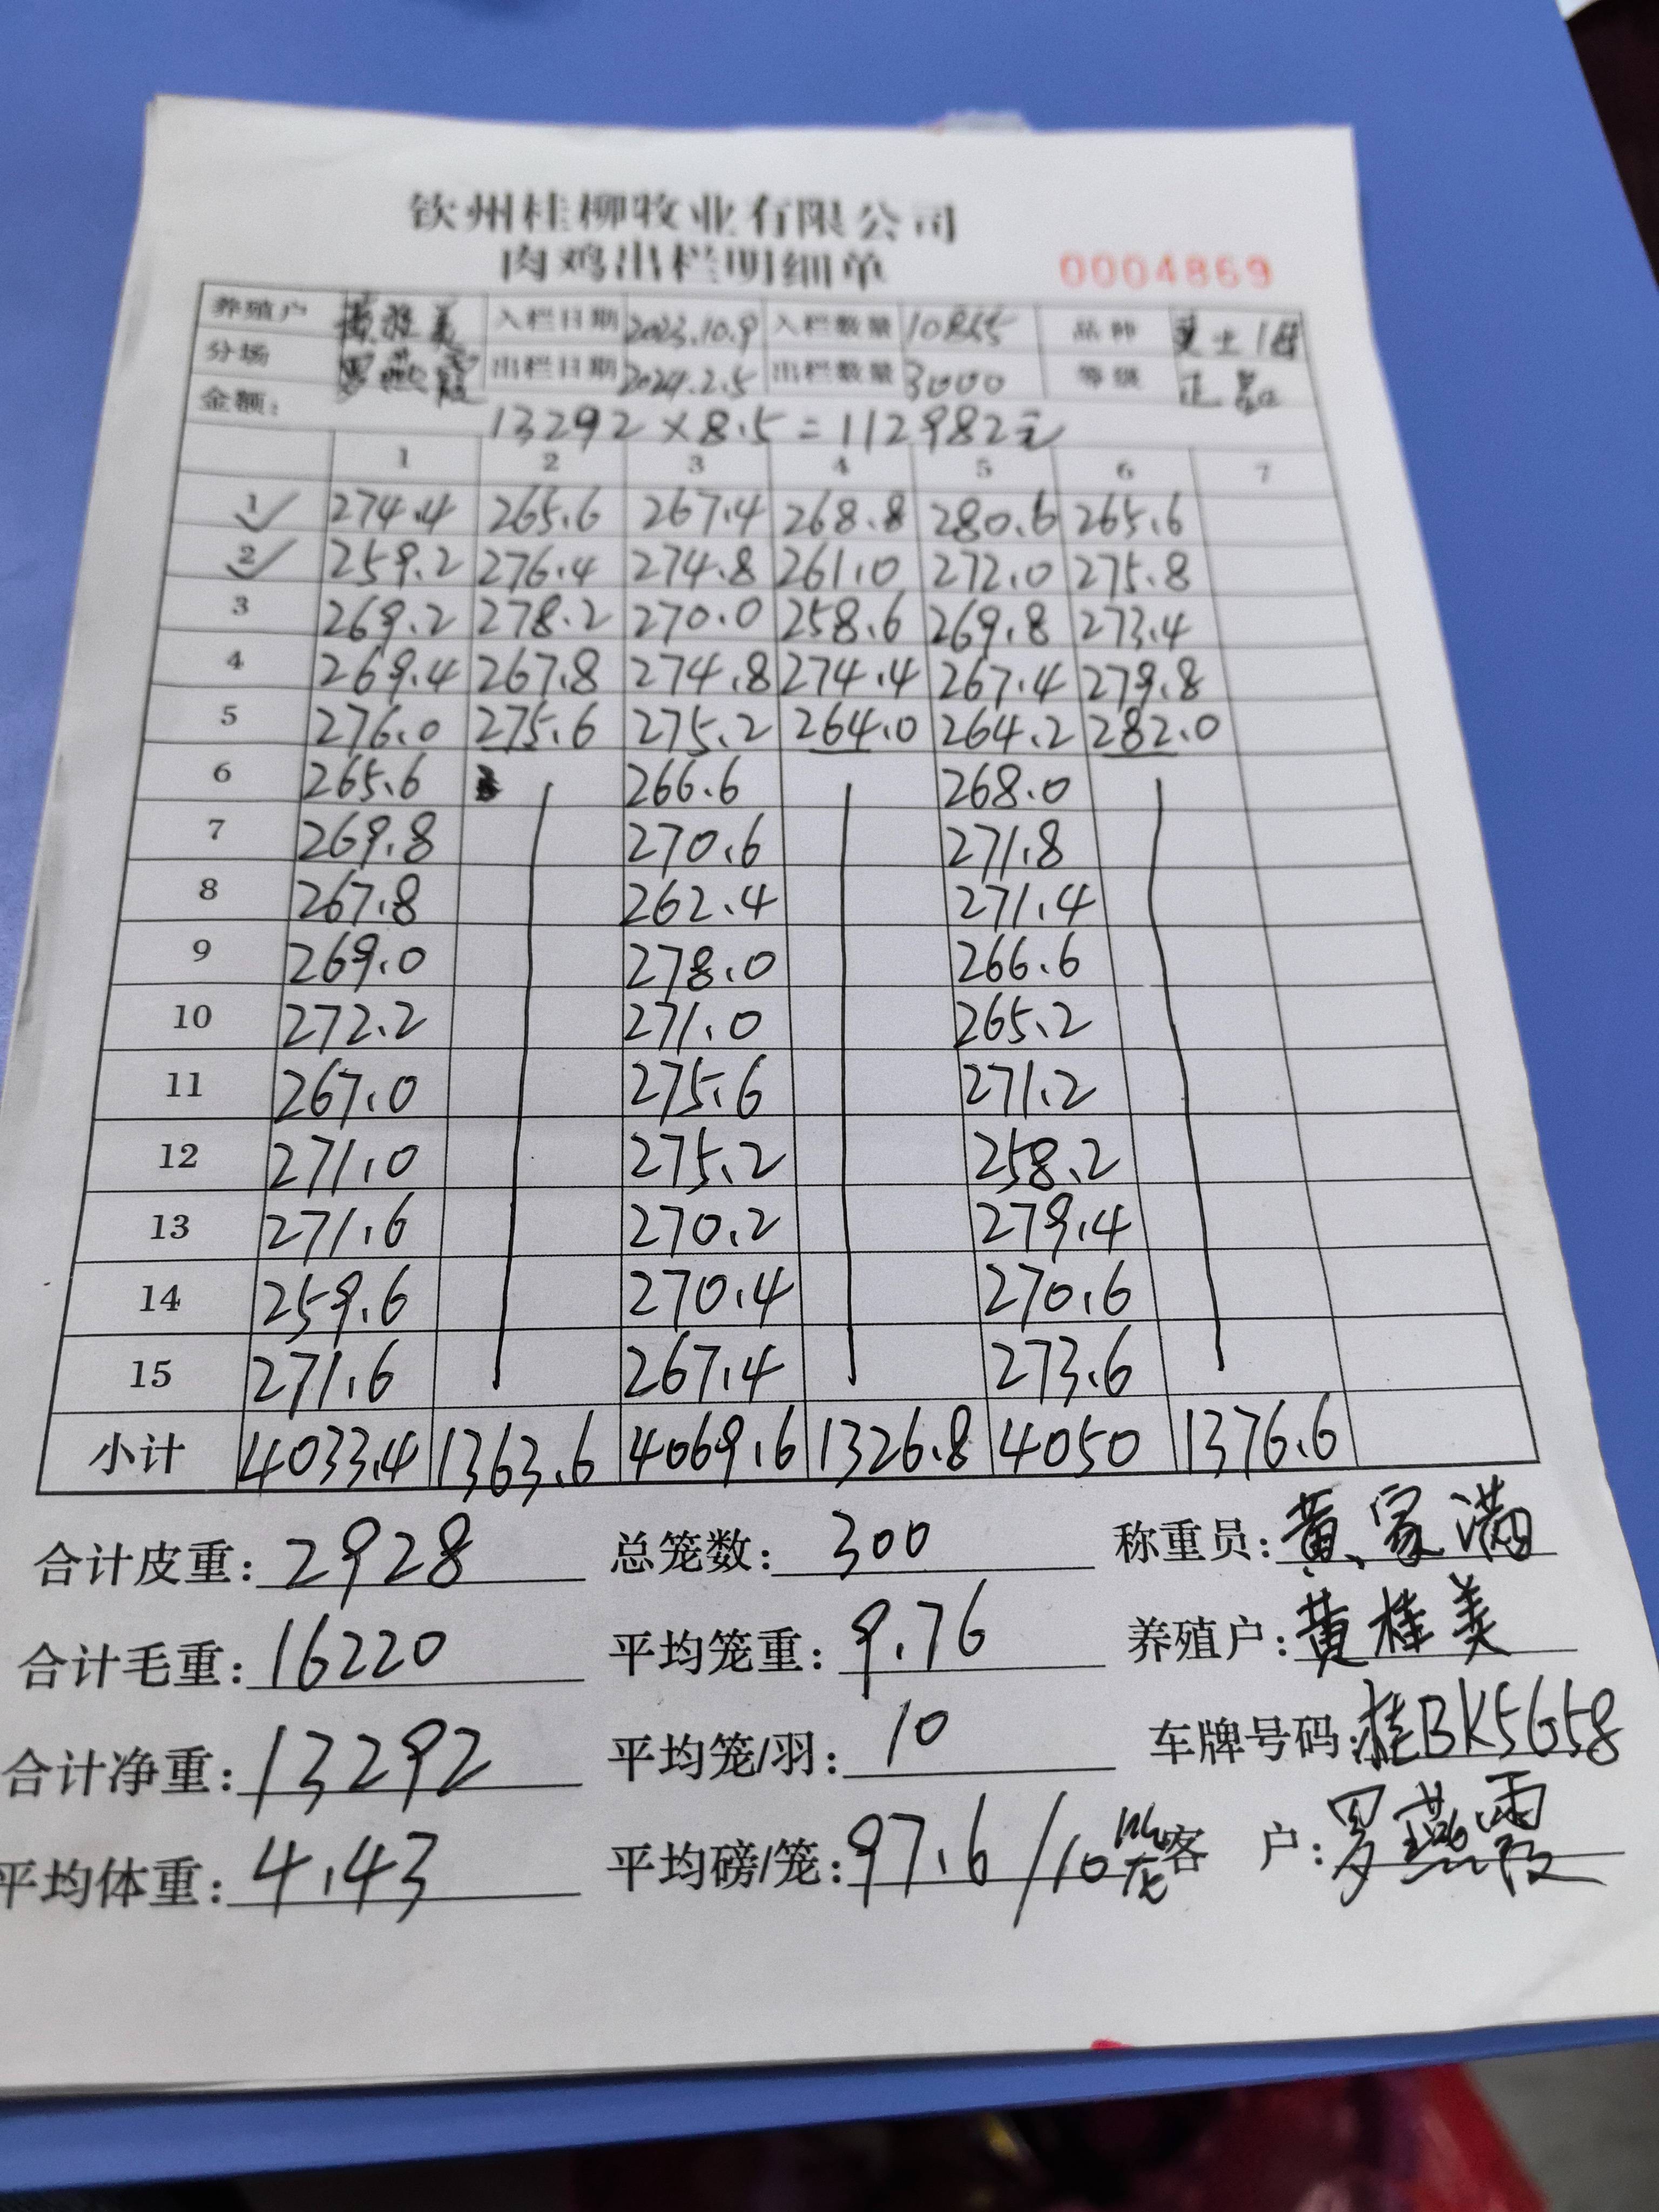 钦州桂柳牧业有限公司
肉鸡出栏明细单 0004869
养殖户 黄桂美 入栏日期 2023.10.9 入栏数量 品种
分场 罗燕霞 出栏日期 2024.2.5 出栏数量 3000 等级 正品
金额: 13292×8.5=112982元
1 2 3 4 5 6 7
1 274.4 265.6 267.4 268.8 280.6 265.6
2 259.2 276.4 274.8 261.0 272.0 275.8
3 269.2 278.2 270.0 258.6 269.8 273.4
4 269.4 267.8 274.8 274.4 267.4 279.8
5 276.0 275.6 275.2 264.0 264.2 282.0
6 265.6 266.6 268.0
7 269.8 270.6 271.8
8 267.8 262.4 271.4
9 269.0 278.0 266.6
10 272.2 271.0 265.2
11 267.0 275.6 271.2
12 271.0 275.2 258.2
13 271.6 270.2 279.4
14 259.6 270.4 270.6
15 271.6 267.4 273.6
小计 4033.4 1363.6 4069.6 1326.8 4050 1376.6
合计皮重: 2928 总笼数: 300 称重员: 黄家满
合计毛重: 16220 平均笼重: 9.76 养殖户: 黄桂美
合计净重: 13292 平均笼/羽: 10 车牌号码: 桂BK5658
平均体重: 4.43 平均磅/笼: 97.6/10 客 户: 罗燕霞